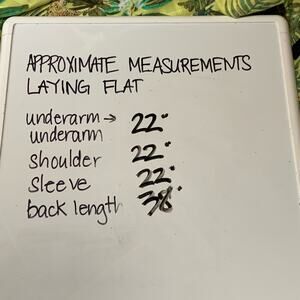 APPROXIMATE MEASUREMENTS
LAYING FLAT
underarm → 22"
underarm
shoulder 22"
sleeve 22"
back length 38"